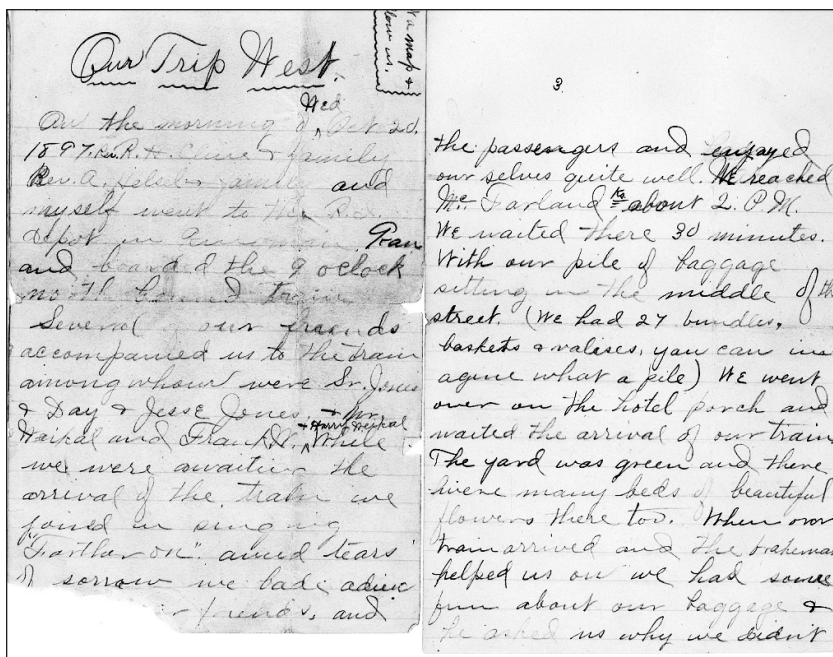 Our Trip West.
a map &
low us.
On the morning of Wed Oct 20.
1897. Rev. R. H. Cline & family
Rev. A. family and
myself went to the R.
Depot in Kan
and boarded the 9 oclock
north bound train
Several of our friends
accompanied us to the train
among whour were Sr. Jones
& Day & Jesse Jones, & Mr.
Heikal and Frank N. & Harry Heikal While
we were awaiting the
arrival of the train we
joined in singing
"Farther on" amid tears
of sorrow we bade adieu
friends, and
3
the passengers and enjoyed
our selves quite well. We reached
Mc Farland Ks about 2. P.M.
We waited there 30 minutes.
With our pile of baggage
sitting in the middle of the
street. (We had 27 bundles,
baskets & valises, you can im
agine what a pile) We went
over on the hotel porch and
waited the arrival of our train
The yard was green and there
were many beds of beautiful
flowers there too. When our
train arrived and the brakeman
helped us on we had some
fun about our baggage &
he asked us why we didn't